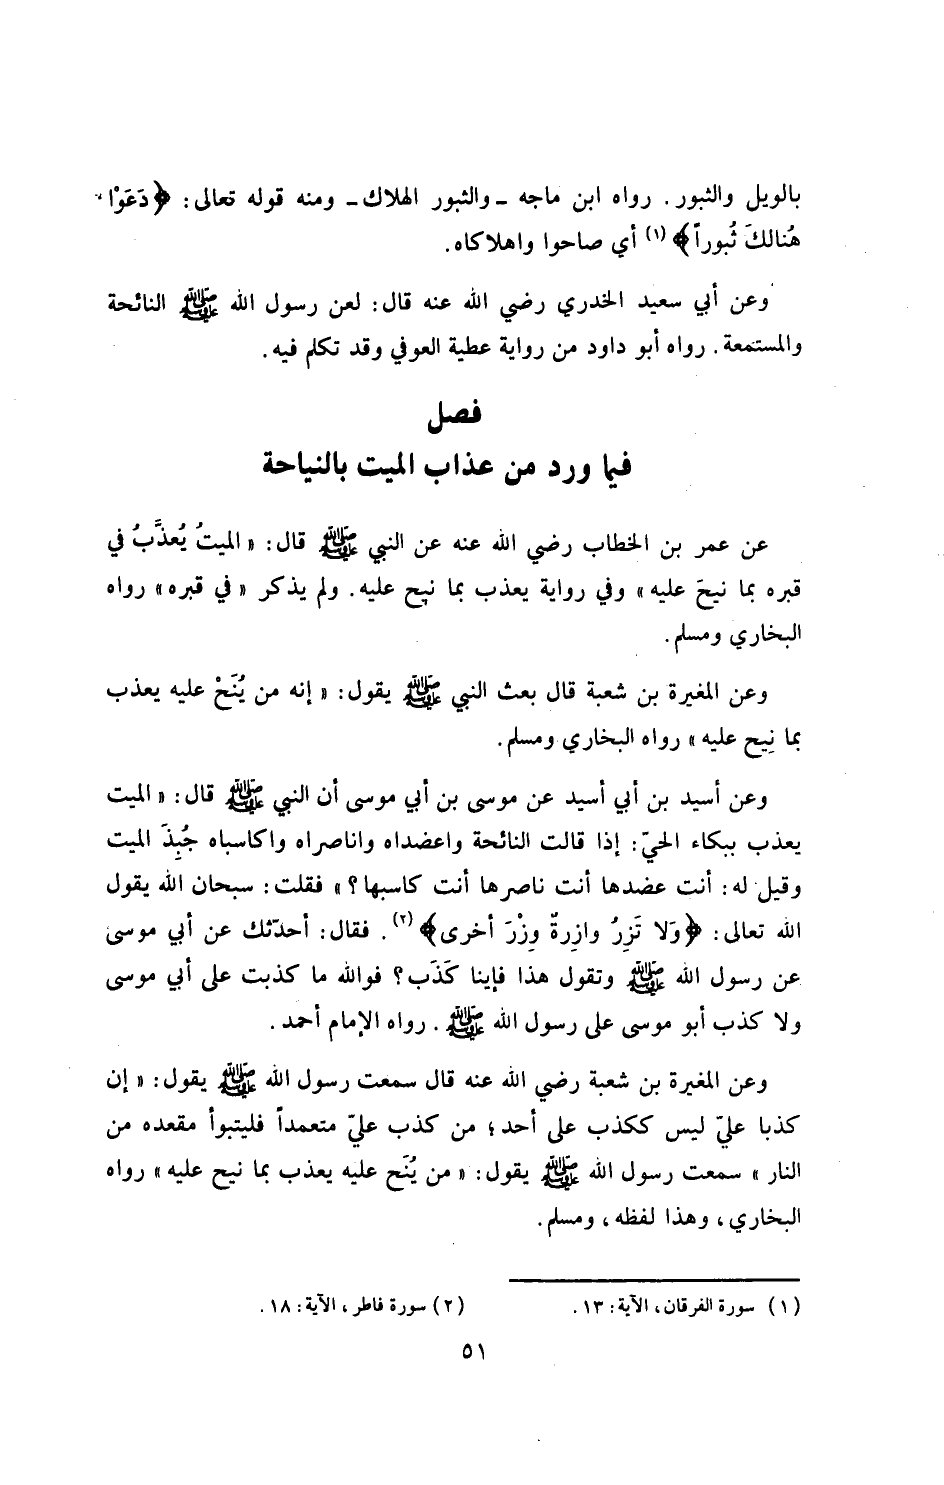 بالويل والثبور. رواه ابن ماجه ـ والثبور الهلاك ـ ومنه قوله تعالى: ﴿دَعَوْا
هُنالكَ ثُبوراً﴾ (١) أي صاحوا واهلاكاه.
وعن أبي سعيد الخدري رضي الله عنه قال: لعن رسول الله ﷺ النائحة
والمستمعة. رواه أبو داود من رواية عطية العوفي وقد تكلم فيه.
فصل
فيما ورد من عذاب الميت بالنياحة
عن عمر بن الخطاب رضي الله عنه عن النبي ﷺ قال: «الميتُ يُعذَّبُ في
قبره بما نيحَ عليه» وفي رواية يعذب بما نيح عليه. ولم يذكر «في قبره» رواه
البخاري ومسلم.
وعن المغيرة بن شعبة قال بعث النبي ﷺ يقول: «إنه من يُنَحْ عليه يعذب
بما نِيح عليه» رواه البخاري ومسلم.
وعن أسيد بن أبي أسيد عن موسى بن أبي موسى أن النبي ﷺ قال: «الميت
يعذب ببكاء الحيّ: إذا قالت النائحة واعضداه واناصراه واكاسباه جُبِذَ الميت
وقيل له: أنت عضدها أنت ناصرها أنت كاسبها؟» فقلت: سبحان الله يقول
الله تعالى: ﴿وَلا تَزِرُ وازِرةٌ وِزْرَ أخرى﴾ (٢). فقال: أحدّثك عن أبي موسى
عن رسول الله ﷺ وتقول هذا فاينا كَذَب؟ فوالله ما كذبت على أبي موسى
ولا كذب أبو موسى على رسول الله ﷺ. رواه الإمام أحمد.
وعن المغيرة بن شعبة رضي الله عنه قال سمعت رسول الله ﷺ يقول: «إن
كذبا عليّ ليس ككذب على أحد؛ من كذب عليّ متعمداً فليتبوأ مقعده من
النار» سمعت رسول الله ﷺ يقول: «من يُنَح عليه يعذب بما نيح عليه» رواه
البخاري، وهذا لفظه، ومسلم.
(١) سورة الفرقان، الآية: ١٣. (٢) سورة فاطر، الآية: ١٨.
٥١